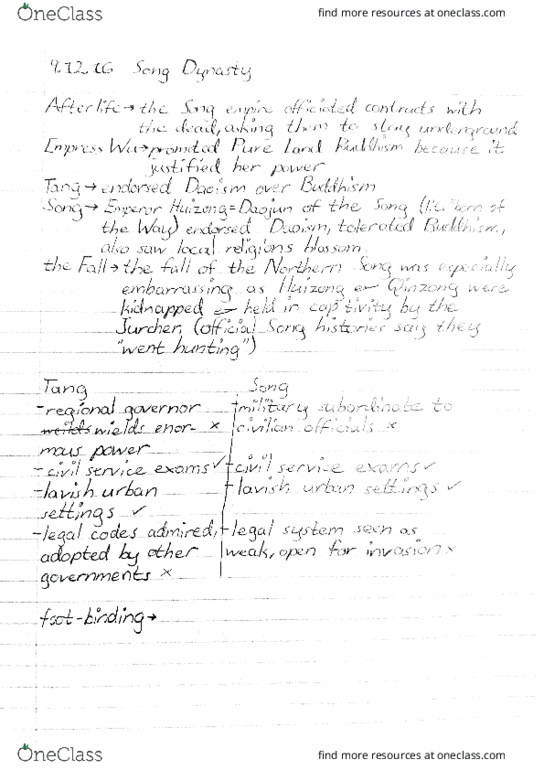 OneClass find more resources at oneclass.com
9.12.16 Song Dynasty
Afterlife → the Song empire officiated contracts with
the dead, asking them to stay underground
Empress Wu → promoted Pure land Buddhism because it
justified her power
Tang → endorsed Daoism over Buddhism
Song → Emperor Huizong = Daojun of the Song (lit. "born of
the Way) endorsed Daoism, tolerated Buddhism,
also saw local religions blossom
the Fall → the fall of the Northern Song was especially
embarrassing as Huizong & Qinzong were
kidnapped & held in captivity by the
Jurchen, (official Song histories say they
"went hunting")
Tang Song
-regional governor -military subordinate to
wields wields enor- × civilian officials ×
mous power
-civil service exams ✓ -civil service exams ✓
-lavish urban - lavish urban settings ✓
settings ✓
-legal codes admired, -legal system seen as
adopted by other weak, open for invasion ×
governments ×
foot-binding →
OneClass find more resources at oneclass.com